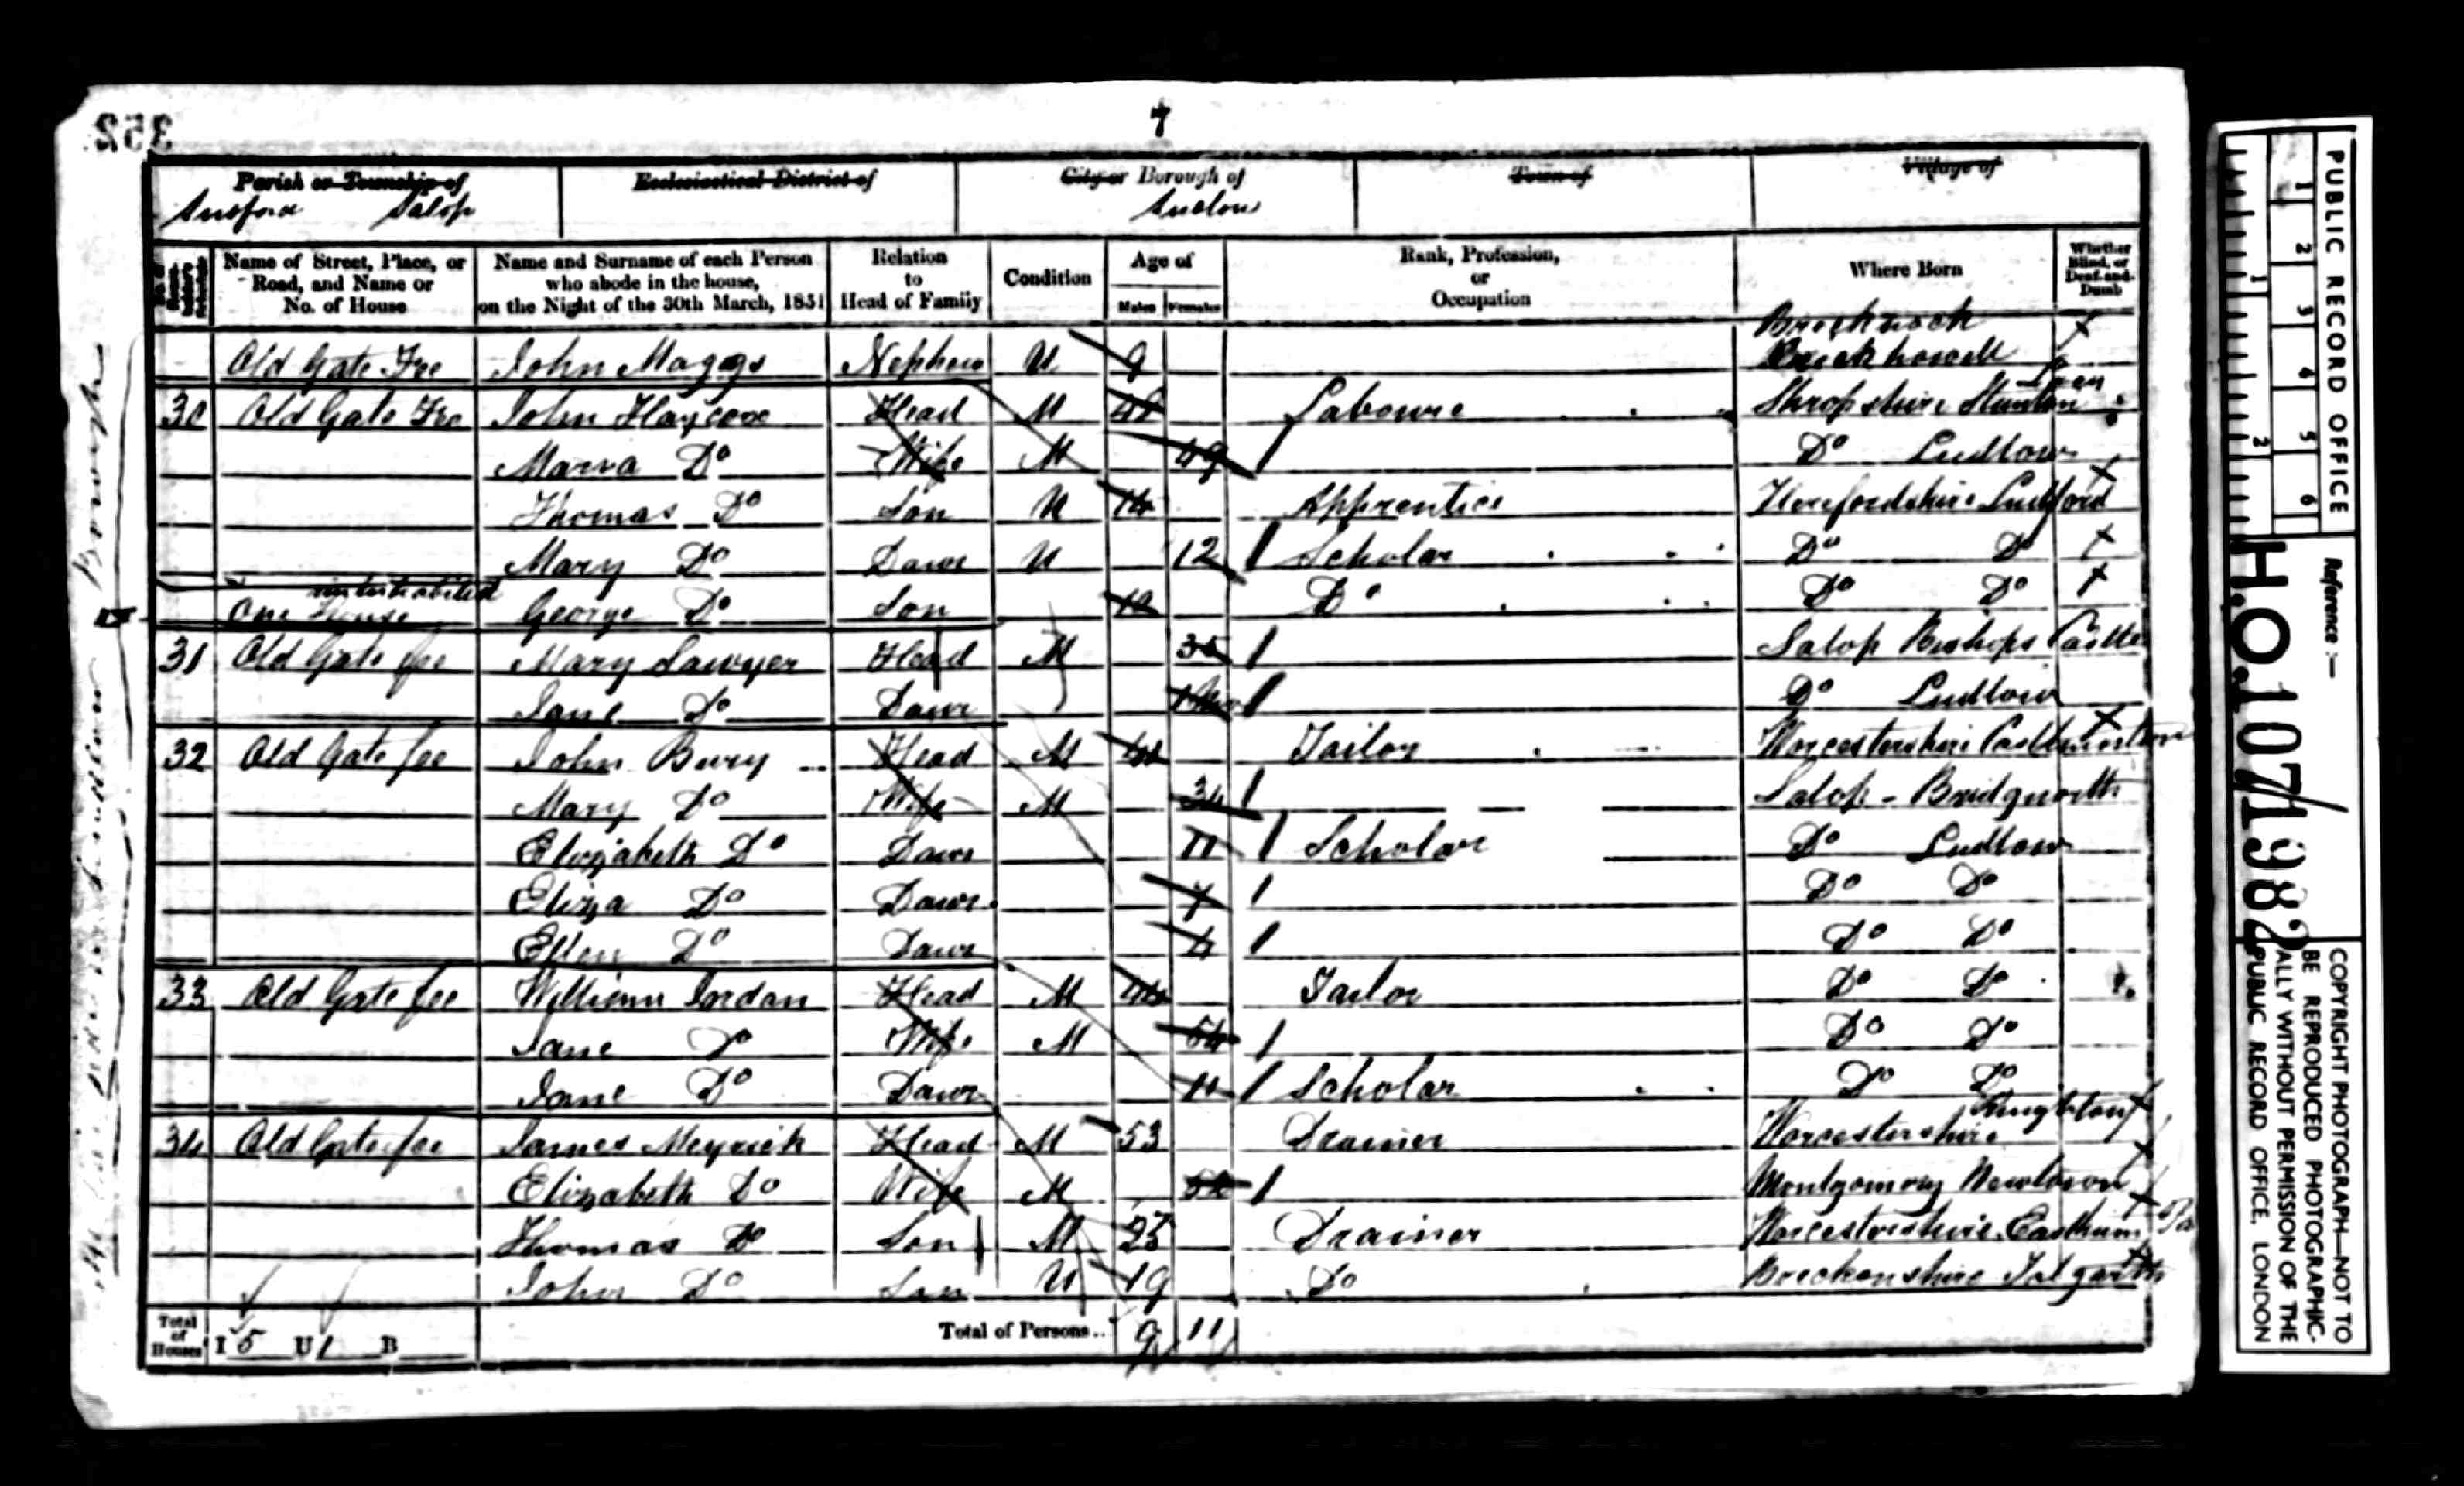 352
7
Parish or Township of
Salop
Ecclesiastical District of
City or Borough of
Ludlow
Town of
Village of
Name of Street, Place, or Road, and Name or No. of House
Name and Surname of each Person who abode in the house, on the Night of the 30th March, 1851
Relation to Head of Family
Condition
Age of
Males Females
Rank, Profession, or Occupation
Where Born
Whether Blind, or Deaf-and-Dumb
Old Gate Fee John Maggs Nephew U 9 Brecknock
30 Old Gate Fee John Haycox Head M Laboure Shropshire
Maria Do Wife M 49 Do Ludlow
Thomas Do Son U 14 Apprentice Herefordshire Ludford
Mary Do Dawr U 12 Scholar Do Do
One House uninhabited George Do Son 10 Do Do Do
31 Old Gate fee Mary Sawyer Head M 35 Salop Bishops Castle
Jane Do Dawr Do Ludlow
32 Old Gate fee John Bury Head M Tailor Worcestershire
Mary Do Wife M 34 Salop - Bridgnorth
Elizabeth Do Dawr 11 Scholar Do Ludlow
Eliza Do Dawr 7 Do Do
Ellen Do Dawr 4 Do Do
33 Old Gate fee William Jordan Head M 44 Tailor Do Do
Jane Do Wife M 54 Do Do
Jane Do Dawr 11 Scholar Do Do
34 Old Gate fee James Meyrick Head M 53 Drainer Worcestershire
Elizabeth Do Wife M Montgomery Newtown
Thomas Do Son M 23 Drainer Worcestershire Eastham
John Do Son U 19 Do Breckonshire Talgarth
Total of Houses I 5 U 1 B
Total of Persons.. 9 11
PUBLIC RECORD OFFICE
1 2 3 4 5 6
1 2
Reference :-
H.O.107/1982
COPYRIGHT PHOTOGRAPH—NOT TO
BE REPRODUCED PHOTOGRAPHIC-
ALLY WITHOUT PERMISSION OF THE
PUBLIC RECORD OFFICE, LONDON